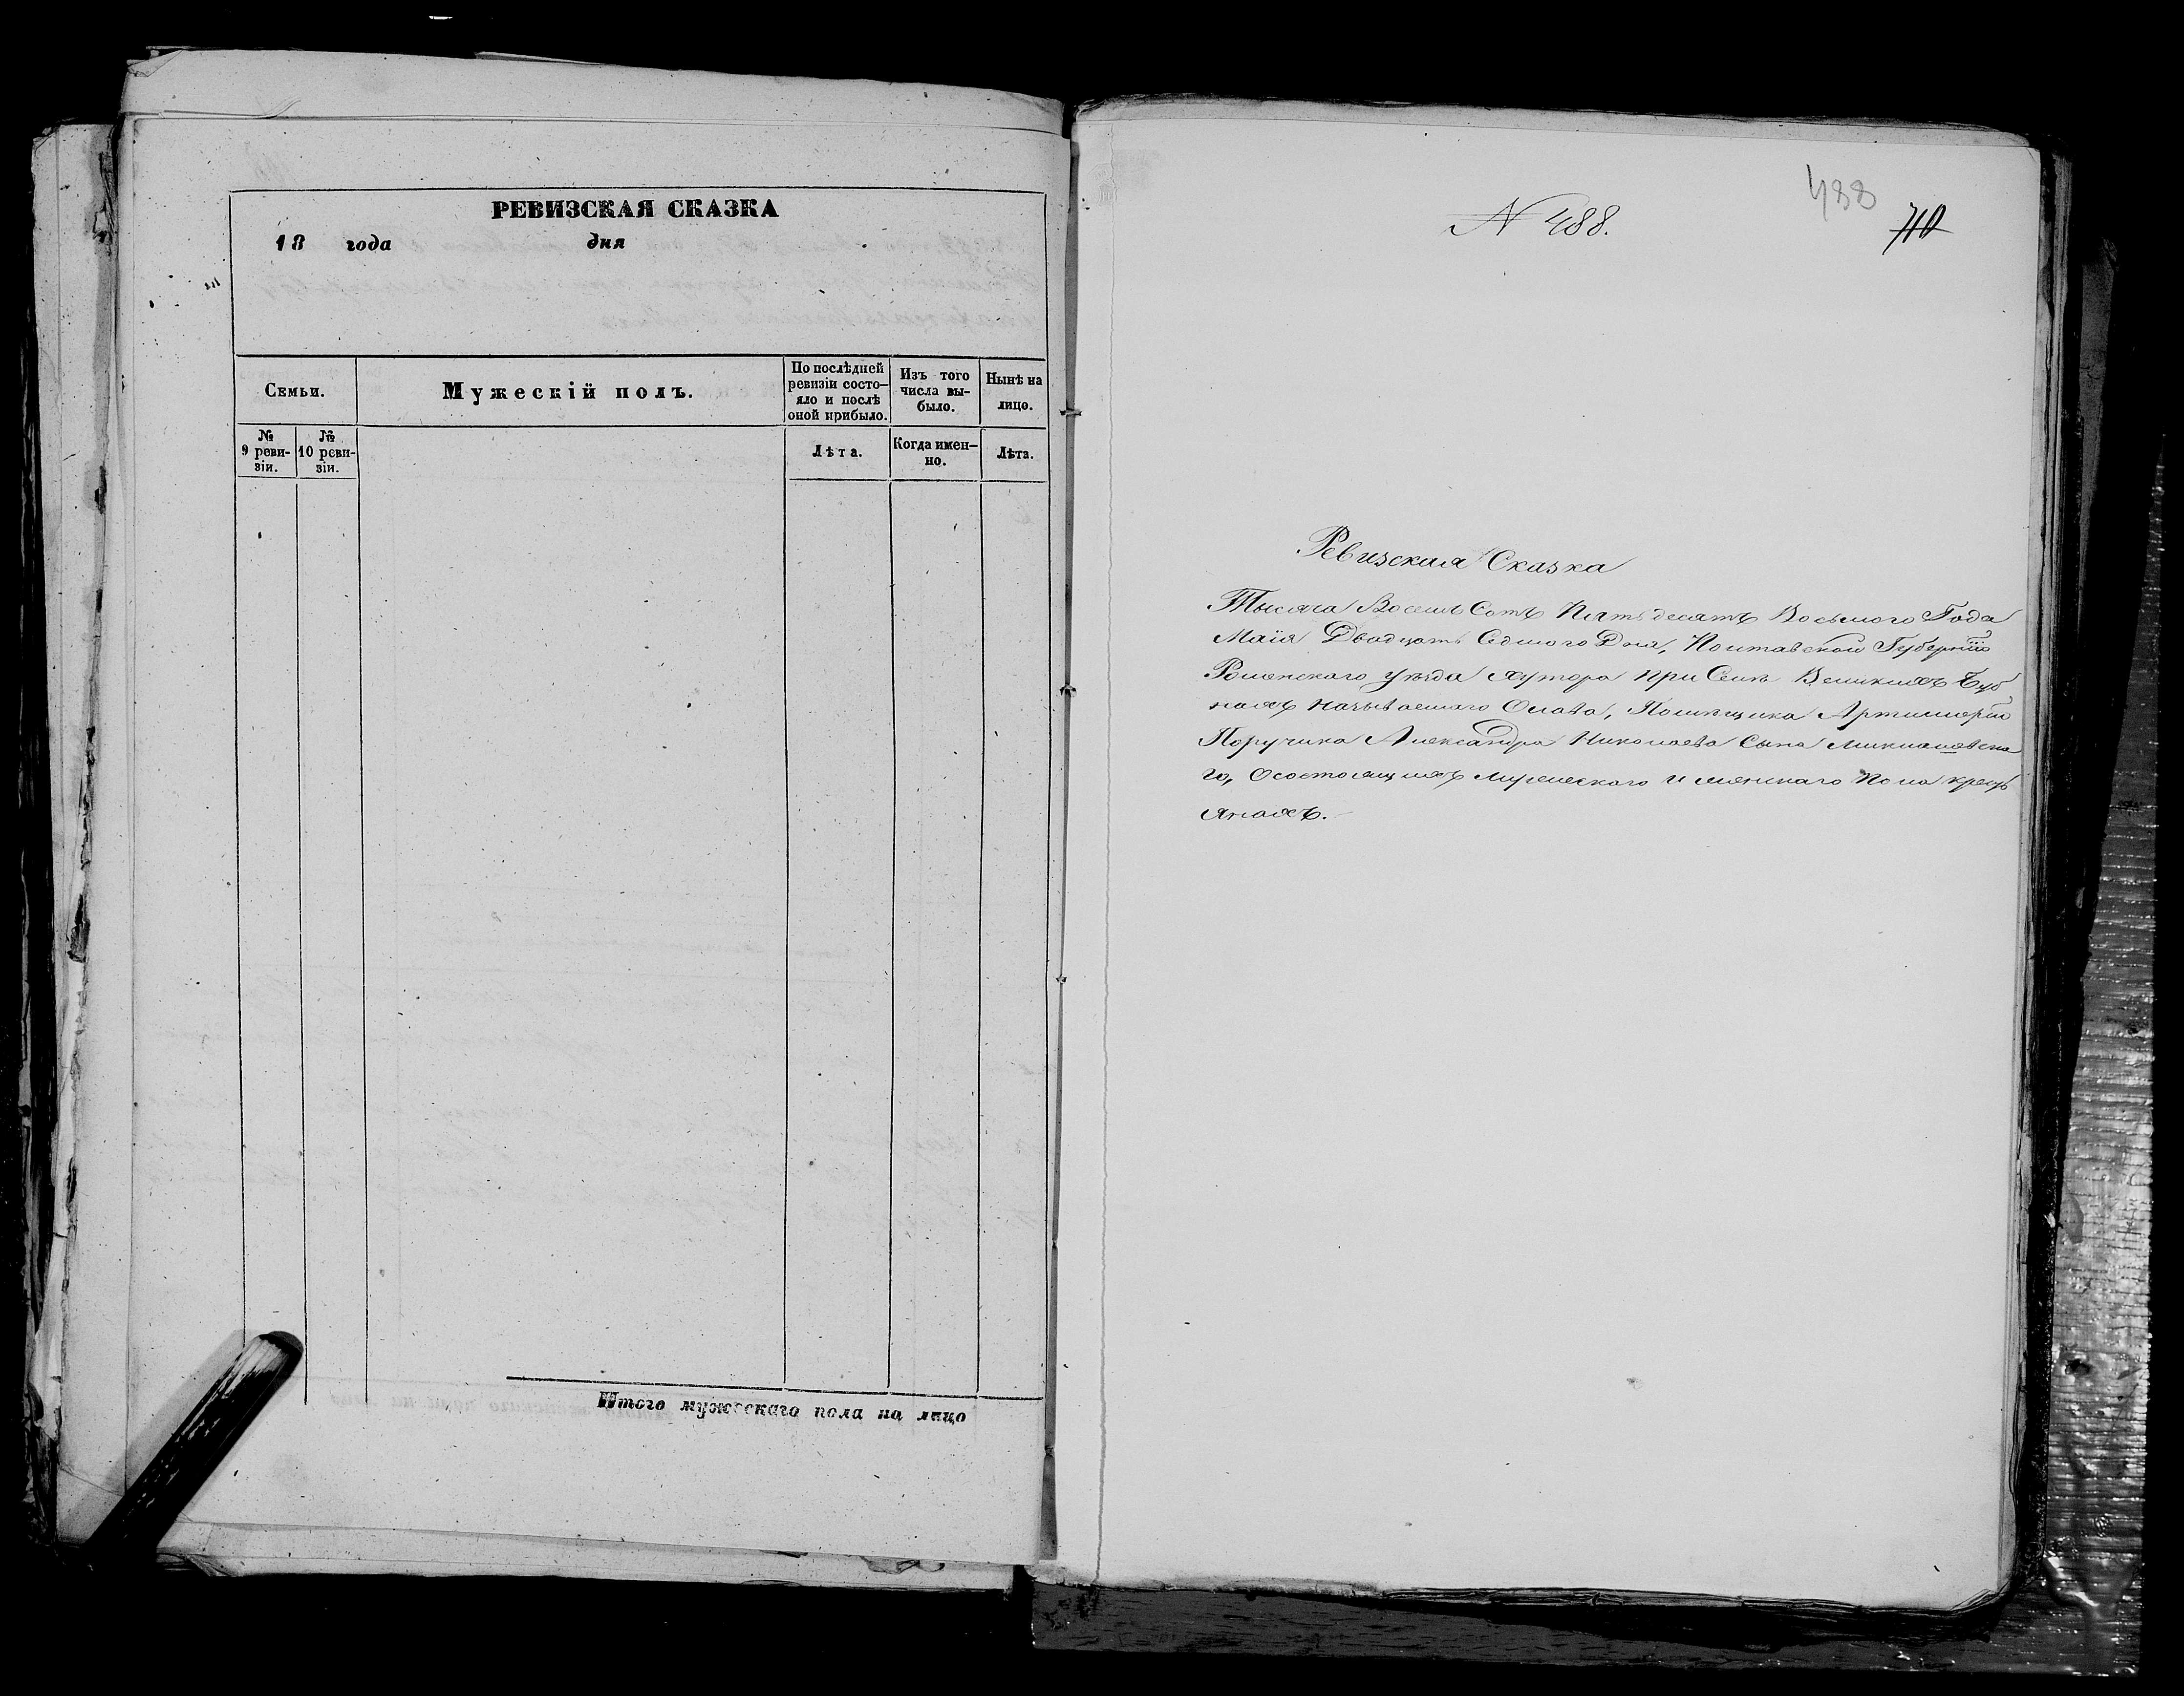 РЕВИЗСКАЯ СКАЗКА
18 года дня
Семьи.
Мужескій полъ.
По послѣдней
ревизіи состо-
яло и послѣ
оной прибыло.
Изъ того
числа вы-
было.
Нынѣ на
лицо.
№
9 реви-
зіи.
№
10 реви-
зіи.
Лѣта.
Когда имен-
но.
Лѣта.
Итого мужескаго пола на лицо
488
N 488.
710
Ревизская Сказка
Тысяча Восемь Сотъ Пятьдесятъ Восьмого Года
Маія Двадцать Седмого Дня, Полтавской Губерніи
Роменского уѣзда хутора при Селѣ Великихъ Буб
нахъ называемого, Помѣщика Артилеріи
Поручика Александра Николаева Сына
го, О состоящихъ Мужеского и женскаго пола кресть
янахъ.